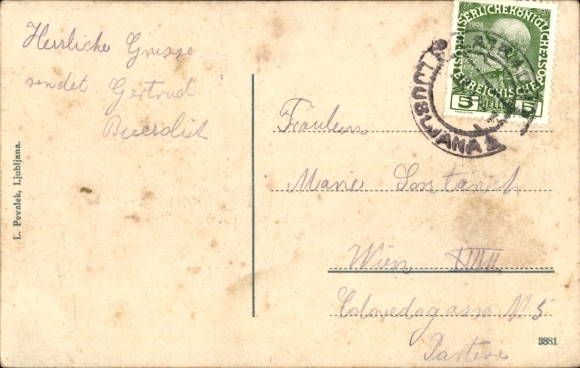 Herrliche Grüsse
sendet Gertrud
L. Pevalek, Ljubljana.
KAISERLICHE KÖNIGLICHE
ÖSTERREICHISCHE POST
5 HELLER 5
LJUBLJANA 2
Fräulein
Marie
Wien VIII
gasse N 5
Parterre
3881